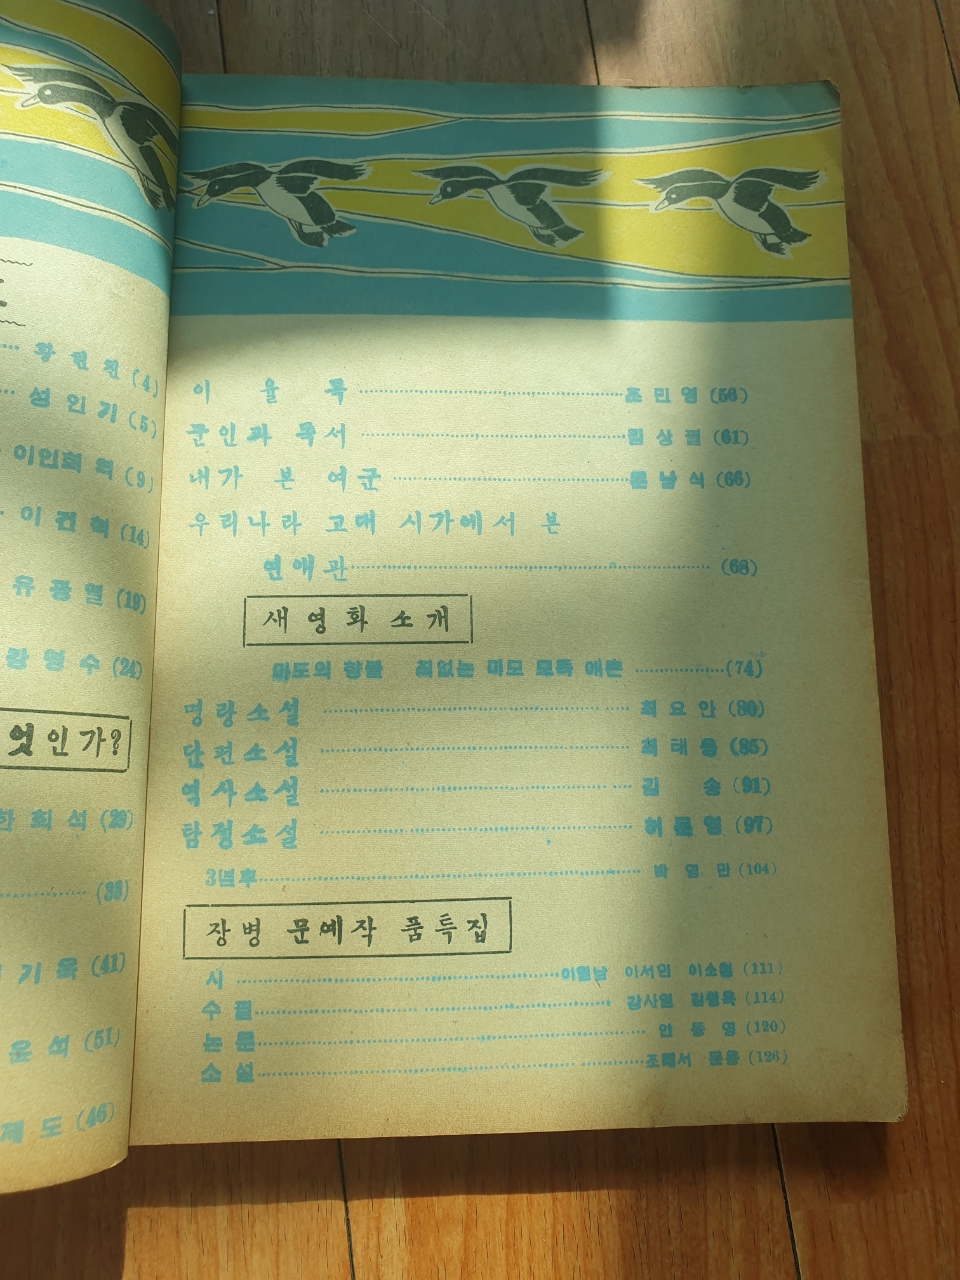 황 헌 친 (4)
성 인 기 (5)
이인희 역 (9)
이 건 혁 (14)
유 광 열 (19)
강 영 수 (24)
엇인가?
한 희 석 (29)
(33)
기 욱 (41)
윤 석 (51)
제 도 (46)
이 율 곡 조 민 영 (56)
군인과 독서 김 상 필 (61)
내가 본 여군 윤 남 식 (66)
우리나라 고대 시가에서 본
연애관 (68)
새 영화 소개
마도의 향불 죄없는 미모 모록 애촌 (74)
명랑소설 최 요 안 (80)
단편소설 최 태 응 (85)
역사소설 김 송 (91)
탐정소설 허 문 영 (97)
3년후 박 영 만 (104)
장병 문예작 품특집
시 이일남 이서민 이소림 (111)
수 필 강사일 김형욱 (114)
논 문 안 동 영 (120)
소 설 조해서 문웅 (126)